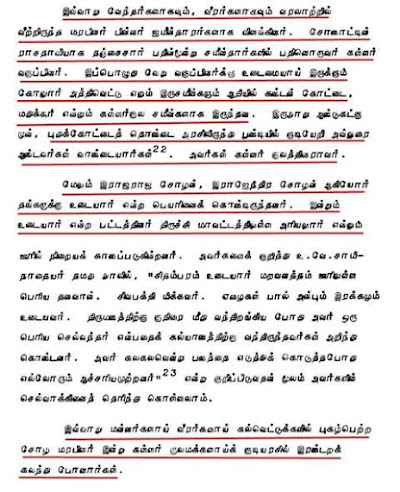 இவ்வாறு வேந்தர்களாகவும், வீரர்களாகவும் வரலாற்றில்
வீற்றிருந்த மரபினர் பின்னர் ஜமீன்தாரர்களாக விளங்கினர். சோனாட்டின்
ராசதாலியாக தஞ்சைசார் பதின்மூன்று சமீன்தார்களில் பதினொருவர் கள்ளர்
வகுப்பினர். இப்பொழுது வேறு வகுப்பினர்க்கு உடைமையாய் இருக்கும்
கோனூர் அத்திவெட்டி எனும் இருசமீன்களும் ஆதியில் கண்டன் கோட்டை,
மதுக்கர் என்னும் கள்ளர்குல சமீன்களாக இருந்தன. இருநூறு ஆண்டுகட்கு
முன், புதுக்கோட்டைத் தொண்டை அரசிலிருந்து பூண்டியில் குடியேறி அவ்வூரை
ஆண்டவர்கள் வாண்டையார்கள்22. அவர்கள் கள்ளர் குலத்தினராவர்.
மேலும் இராஜராஜ சோழன், இராஜேந்திர சோழன் ஆகியோர்
தங்களுக்கு உடையார் என்ற பெயரினைக் கொண்டிருந்தனர். இன்றும்
உடையார் என்ற பட்டத்தினர் திருச்சி மாவட்டத்திலுள்ள அரியலூர் என்னும்
ஊரில் நிறையக் காணப்படுகின்றனர். அவர்களைக் குறித்து உ.வே.சாமி-
நாதையர் தமது நூலில், "சிதம்பரம் உடையார் மறவனத்தம் ஊரிலுள்ள
பெரிய தனவான். சிவபக்தி மிக்கவர். ஏழைகள் பால் அன்பும் இரக்கமும்
உடையவர். திருமணத்திற்கு குதிரை மீது வந்திறங்கிய போது அவர் ஒரு
பெரிய செல்வந்தர் என்பதைக் கல்யாணத்திற்கு வந்திருந்தவர்கள் அறிந்து
கொண்டனர். அவர் கலகலவென்று பணத்தை எடுத்துக் கொடுத்தபோது
எல்லோரும் ஆச்சரியமுற்றனர்"23 என்று குறிப்பிடுவதன் மூலம் அவர்களின்
செல்வாக்கினைத் தெரிந்து கொள்ளலாம்.
இவ்வாறு மன்னர்களாய் வீரர்களாய் கல்வெட்டுக்களில் புகழ்பெற்ற
சோழ மரபினர் இன்று கள்ளர் குலமக்களாய்க் குடியரசில் இரண்டறக்
கலந்து போனார்கள்.